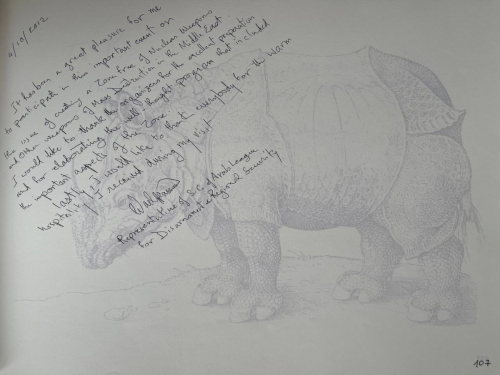 4/10/2012
It has been a great pleasure for me
to participate in this important event on
the issue of creating a Zone free of Nuclear Weapons
and Other weapons of Mass Destruction in the Middle East
I would like to thank the organizers for the excellent preparation
and for elaborating the well thought program that included
the important aspects of the Zone.
Lastly, I would like to thank everybody for the warm
hospitality I received during my visit
Representative of S.G. of Arab League
for Disarmament & Regional Security
107